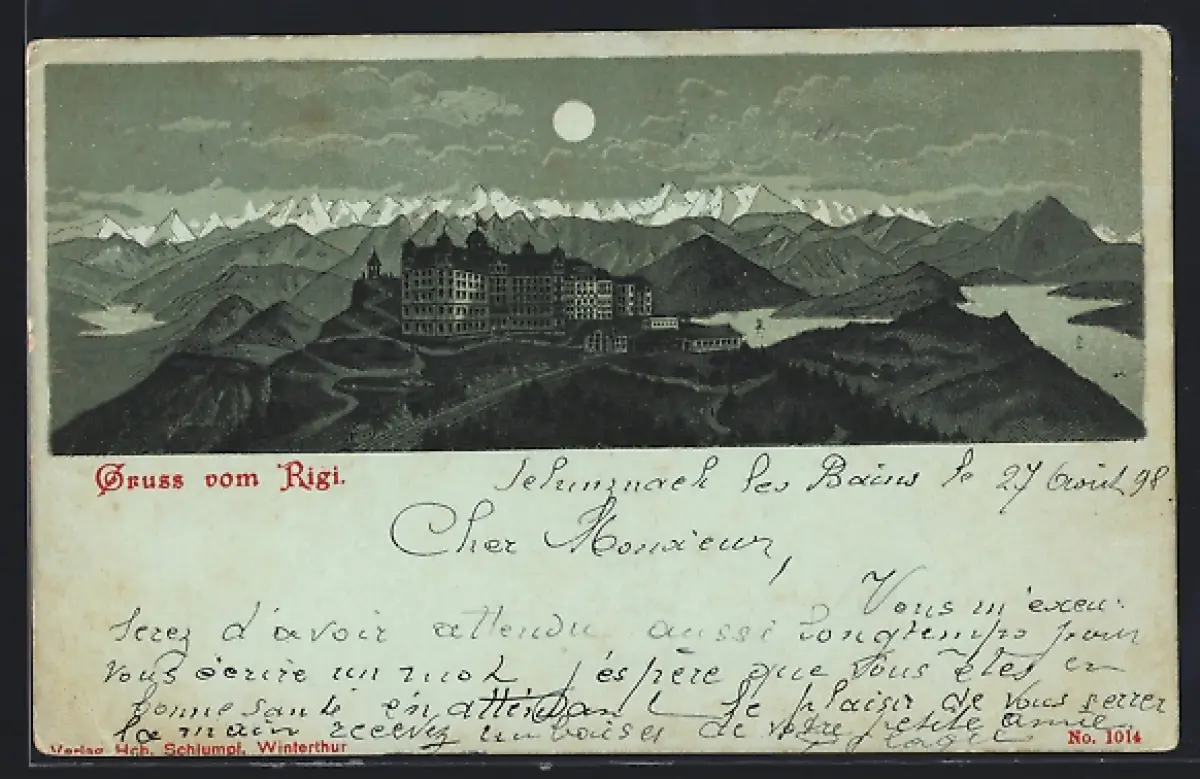 Gruss vom Rigi.
Schinznach les Bains le 27 Août 98
Cher Monsieur,
Vous m'excu-
serez d'avoir attendu aussi longtemps pour
vous écrire un mot j'éspère que vous êtes en
bonne santé en attendant le plaisir de vous serrer
la main recevez un baiser de votre petite amie
Verlag Hch. Schlumpf, Winterthur
No. 1014